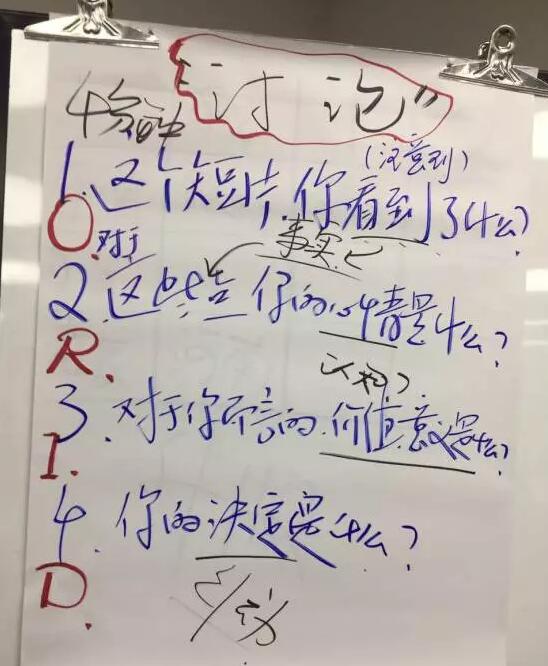 "讨论"
4分钟
1.这个短片,你看到了什么?
(注意到)
O.
对于 事实
2.这些 你的心情是什么?
R.
认知?
3.对于你而言的.价值.意义是什么?
I.
4.你的决定是什么?
D.
行动